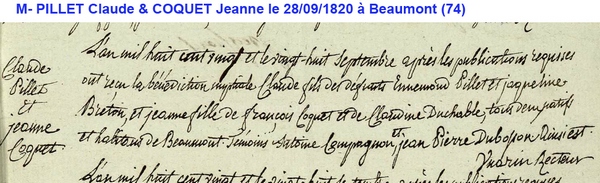 M- PILLET Claude & COQUET Jeanne le 28/09/1820 à Beaumont (74)
L'an mil huit cent vingt et le vingt-huit Septembre après les publications requises
Claude
Pillet
et
jeanne
Coquet
ont reçu la bénédiction nuptiale Claude fils des défunts Ennemond Pillet et jaqueline
Breton, et jeanne fille de françois Coquet et de Claudine Duchable, tous deux natifs
et habitans de Beaumont. Témoins Antoine Compagnon et jean Pierre Duboson Ainsi est.
Recteur
L'an mil huit cent vingt et le vingt-huit de Septembre après les publications requises